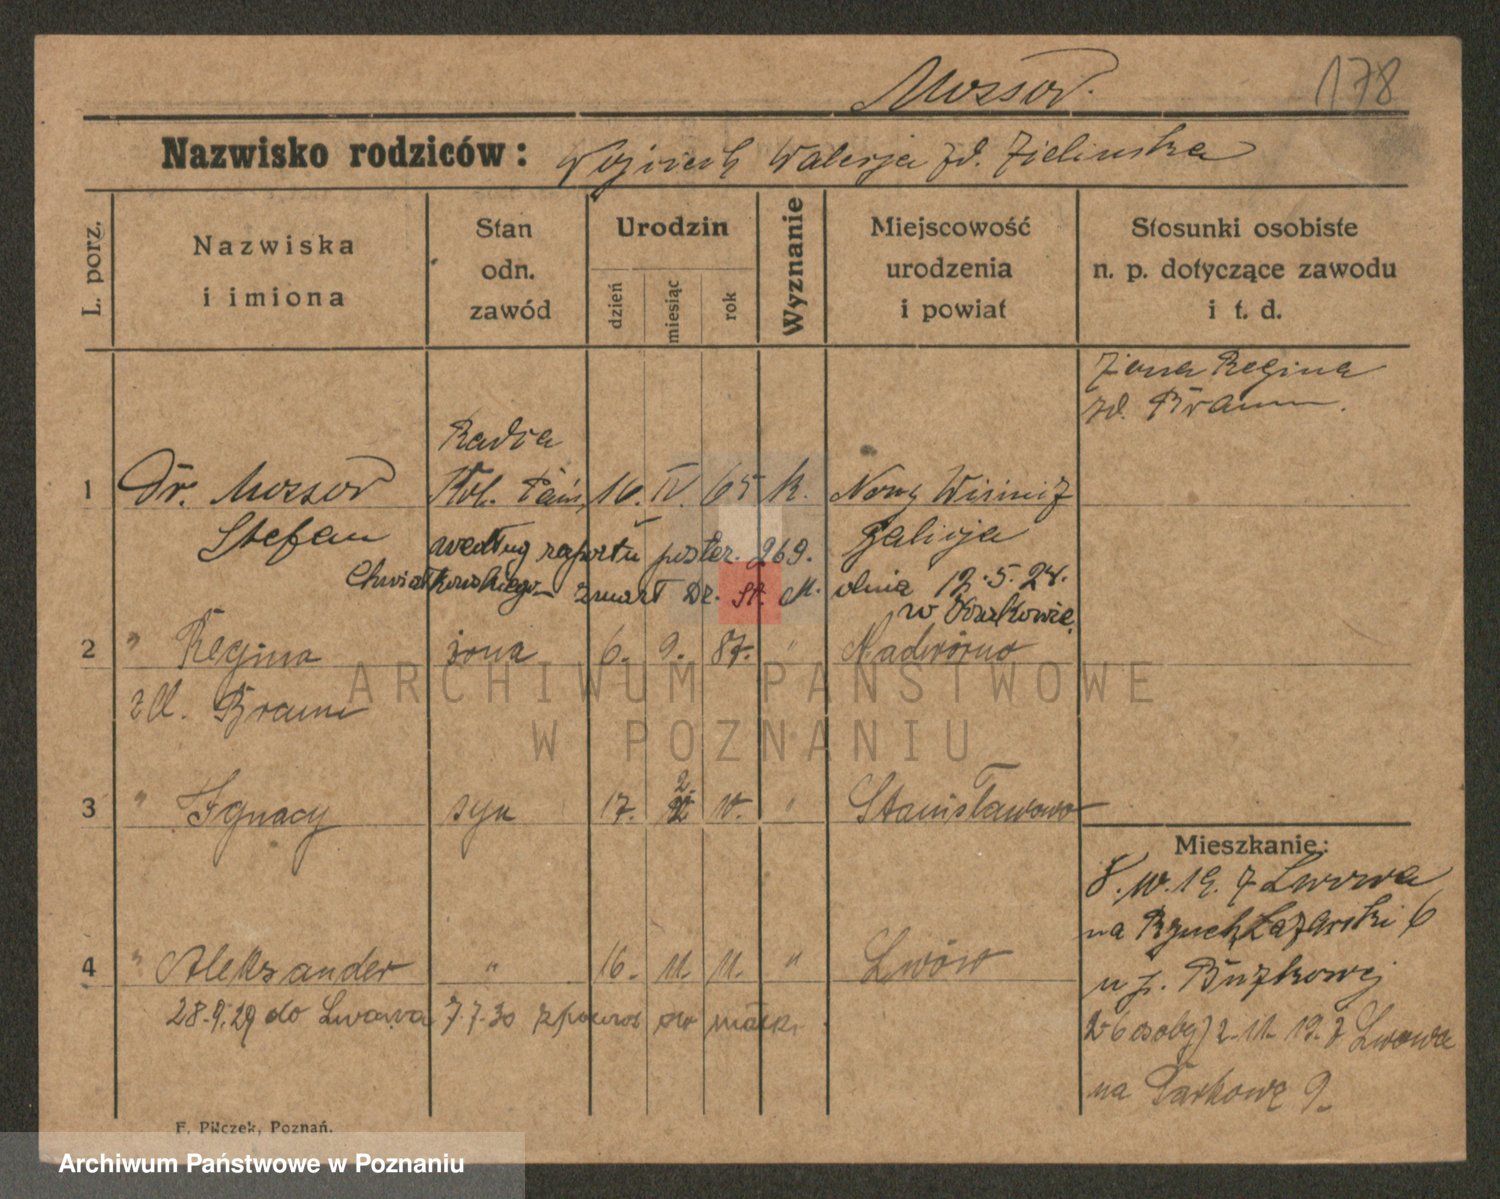 Mossor.
178
Nazwisko rodziców: Wojciech Walerja zd. Zielinska
L. porz.
Nazwiska i imiona
Stan odn. zawód
Urodzin
dzień
miesiąc
rok
Wyznanie
Miejscowość urodzenia i powiat
Stosunki osobiste n. p. dotyczące zawodu i t. d.
Żona Regina
zd. Braun.
Radca
1 Dr. Mossor Kol. Pańs. 16. IV. 65 k. Nowy Wisnicz
Stefan Galicja
według raportu poster. 269.
Chwiałkowskiego zmarł Dr. St. M. dnia 12.5.24.
w Kos
2 " Regina żona 6. 9. 87. " Nadwórno
zd. Braun
3 " Ignacy syn 17. 2 " Stanisławowo
4 " Aleksander " 16. 11. 11. " Lwów
28.9.29 do Lwowa 7.7.30 zpowrot do matki
Mieszkanie:
19. z Lwowa
na Rynek Łazarski 6
u p. Buzkowej
6 osoby) 2.11.19. z Lwowa
na 9.
F. Pilczek, Poznań.
ARCHIWUM PAŃSTWOWE
W POZNANIU
Archiwum Państwowe w Poznaniu